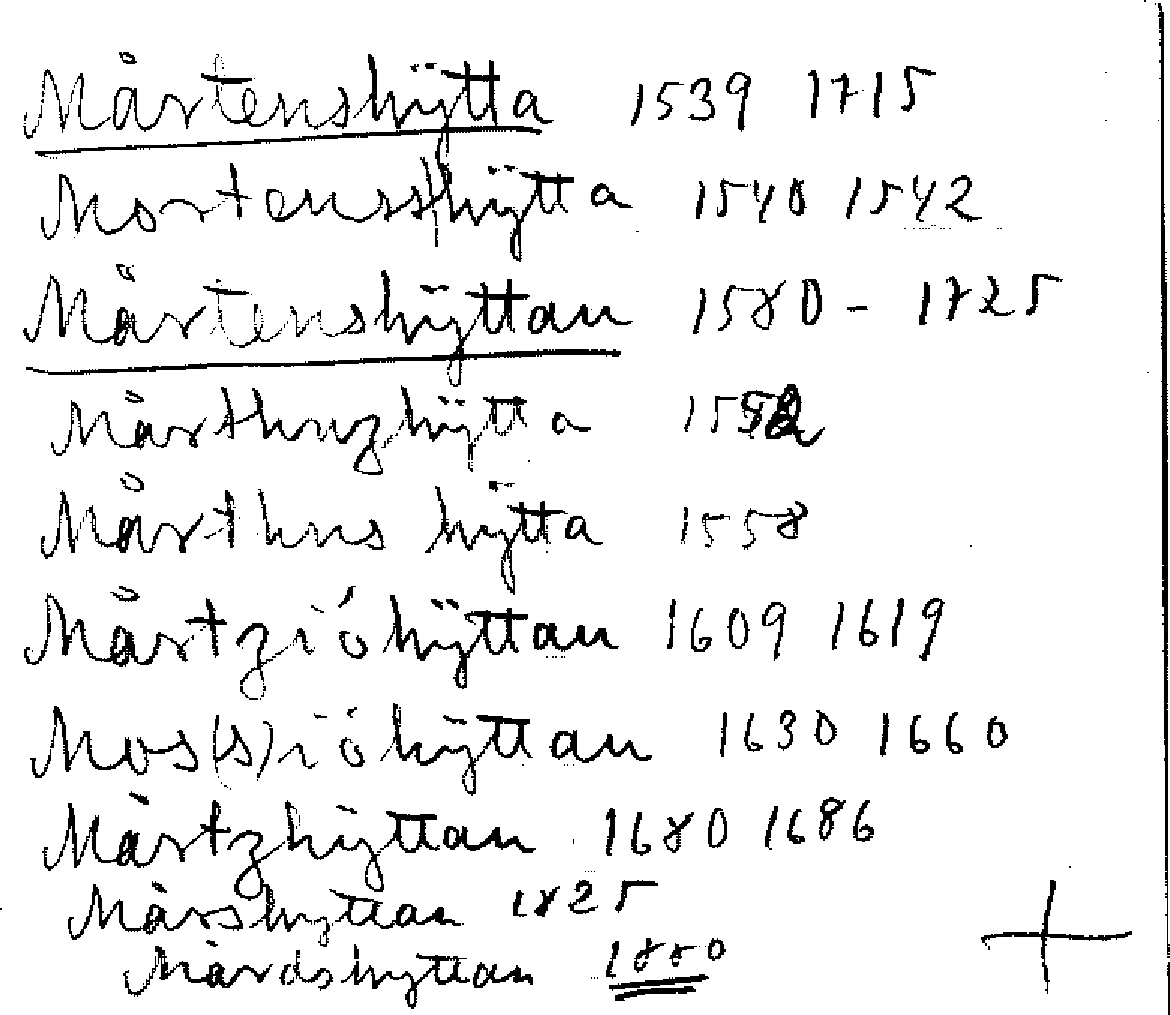 Mårtenshÿtta 1539 1715
Mortensshÿtta 1540 1542
Mårtenshÿttan 1580 - 1725
Mårthnzhÿtta
Mårthns hÿtta 1558
Mårtzióhÿttan 1609 1619
Mos(s)ióhÿttan 1630 1660
Mårtzhyttan 1680 1686
Mårshyttan 1825
Mårdshyttan 1880